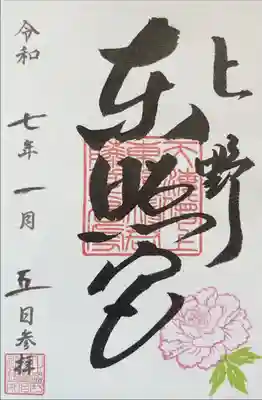 上野
東照宮
令和七年一月五日参拝